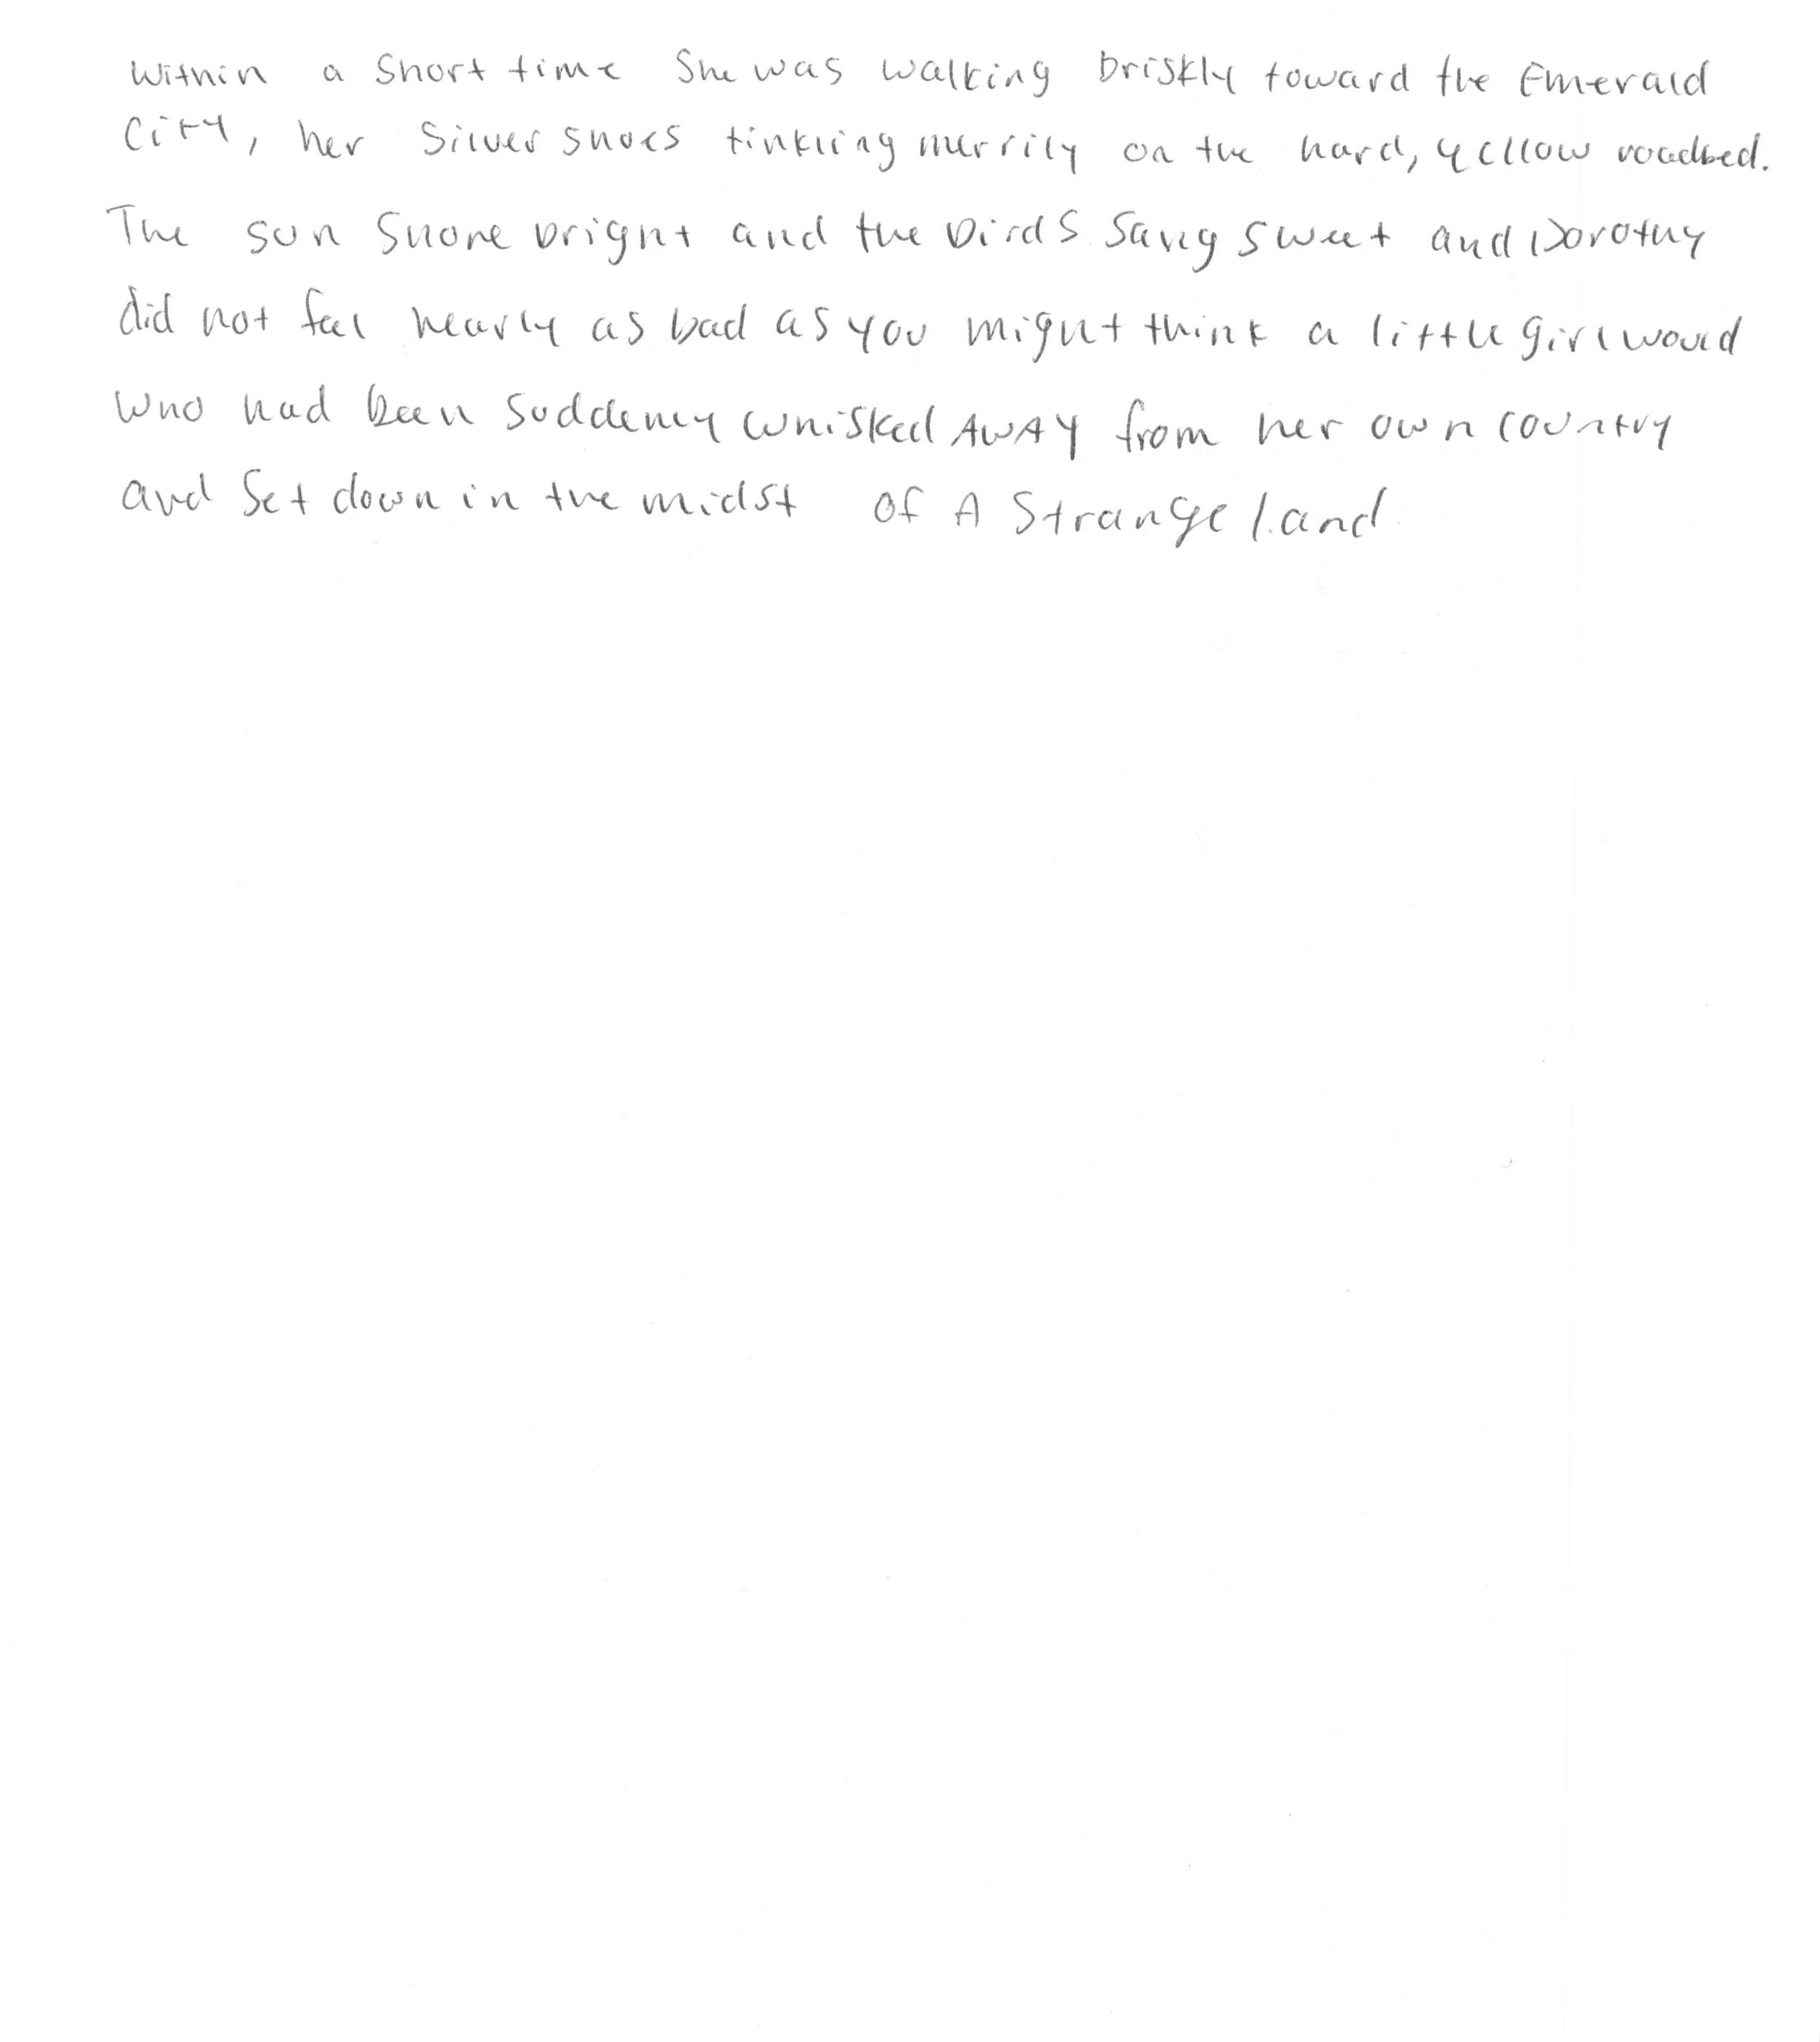 Within a short time she was walking briskly toward the Emerald
City, her Silver shoes tinkling merrily on the hard, yellow roadbed.
The sun shone bright and the birds sang sweet and Dorothy
did not feel nearly as bad as you might think a little girl would
who had been suddenly whisked AWAY from her own country
and set down in the midst of A strange land